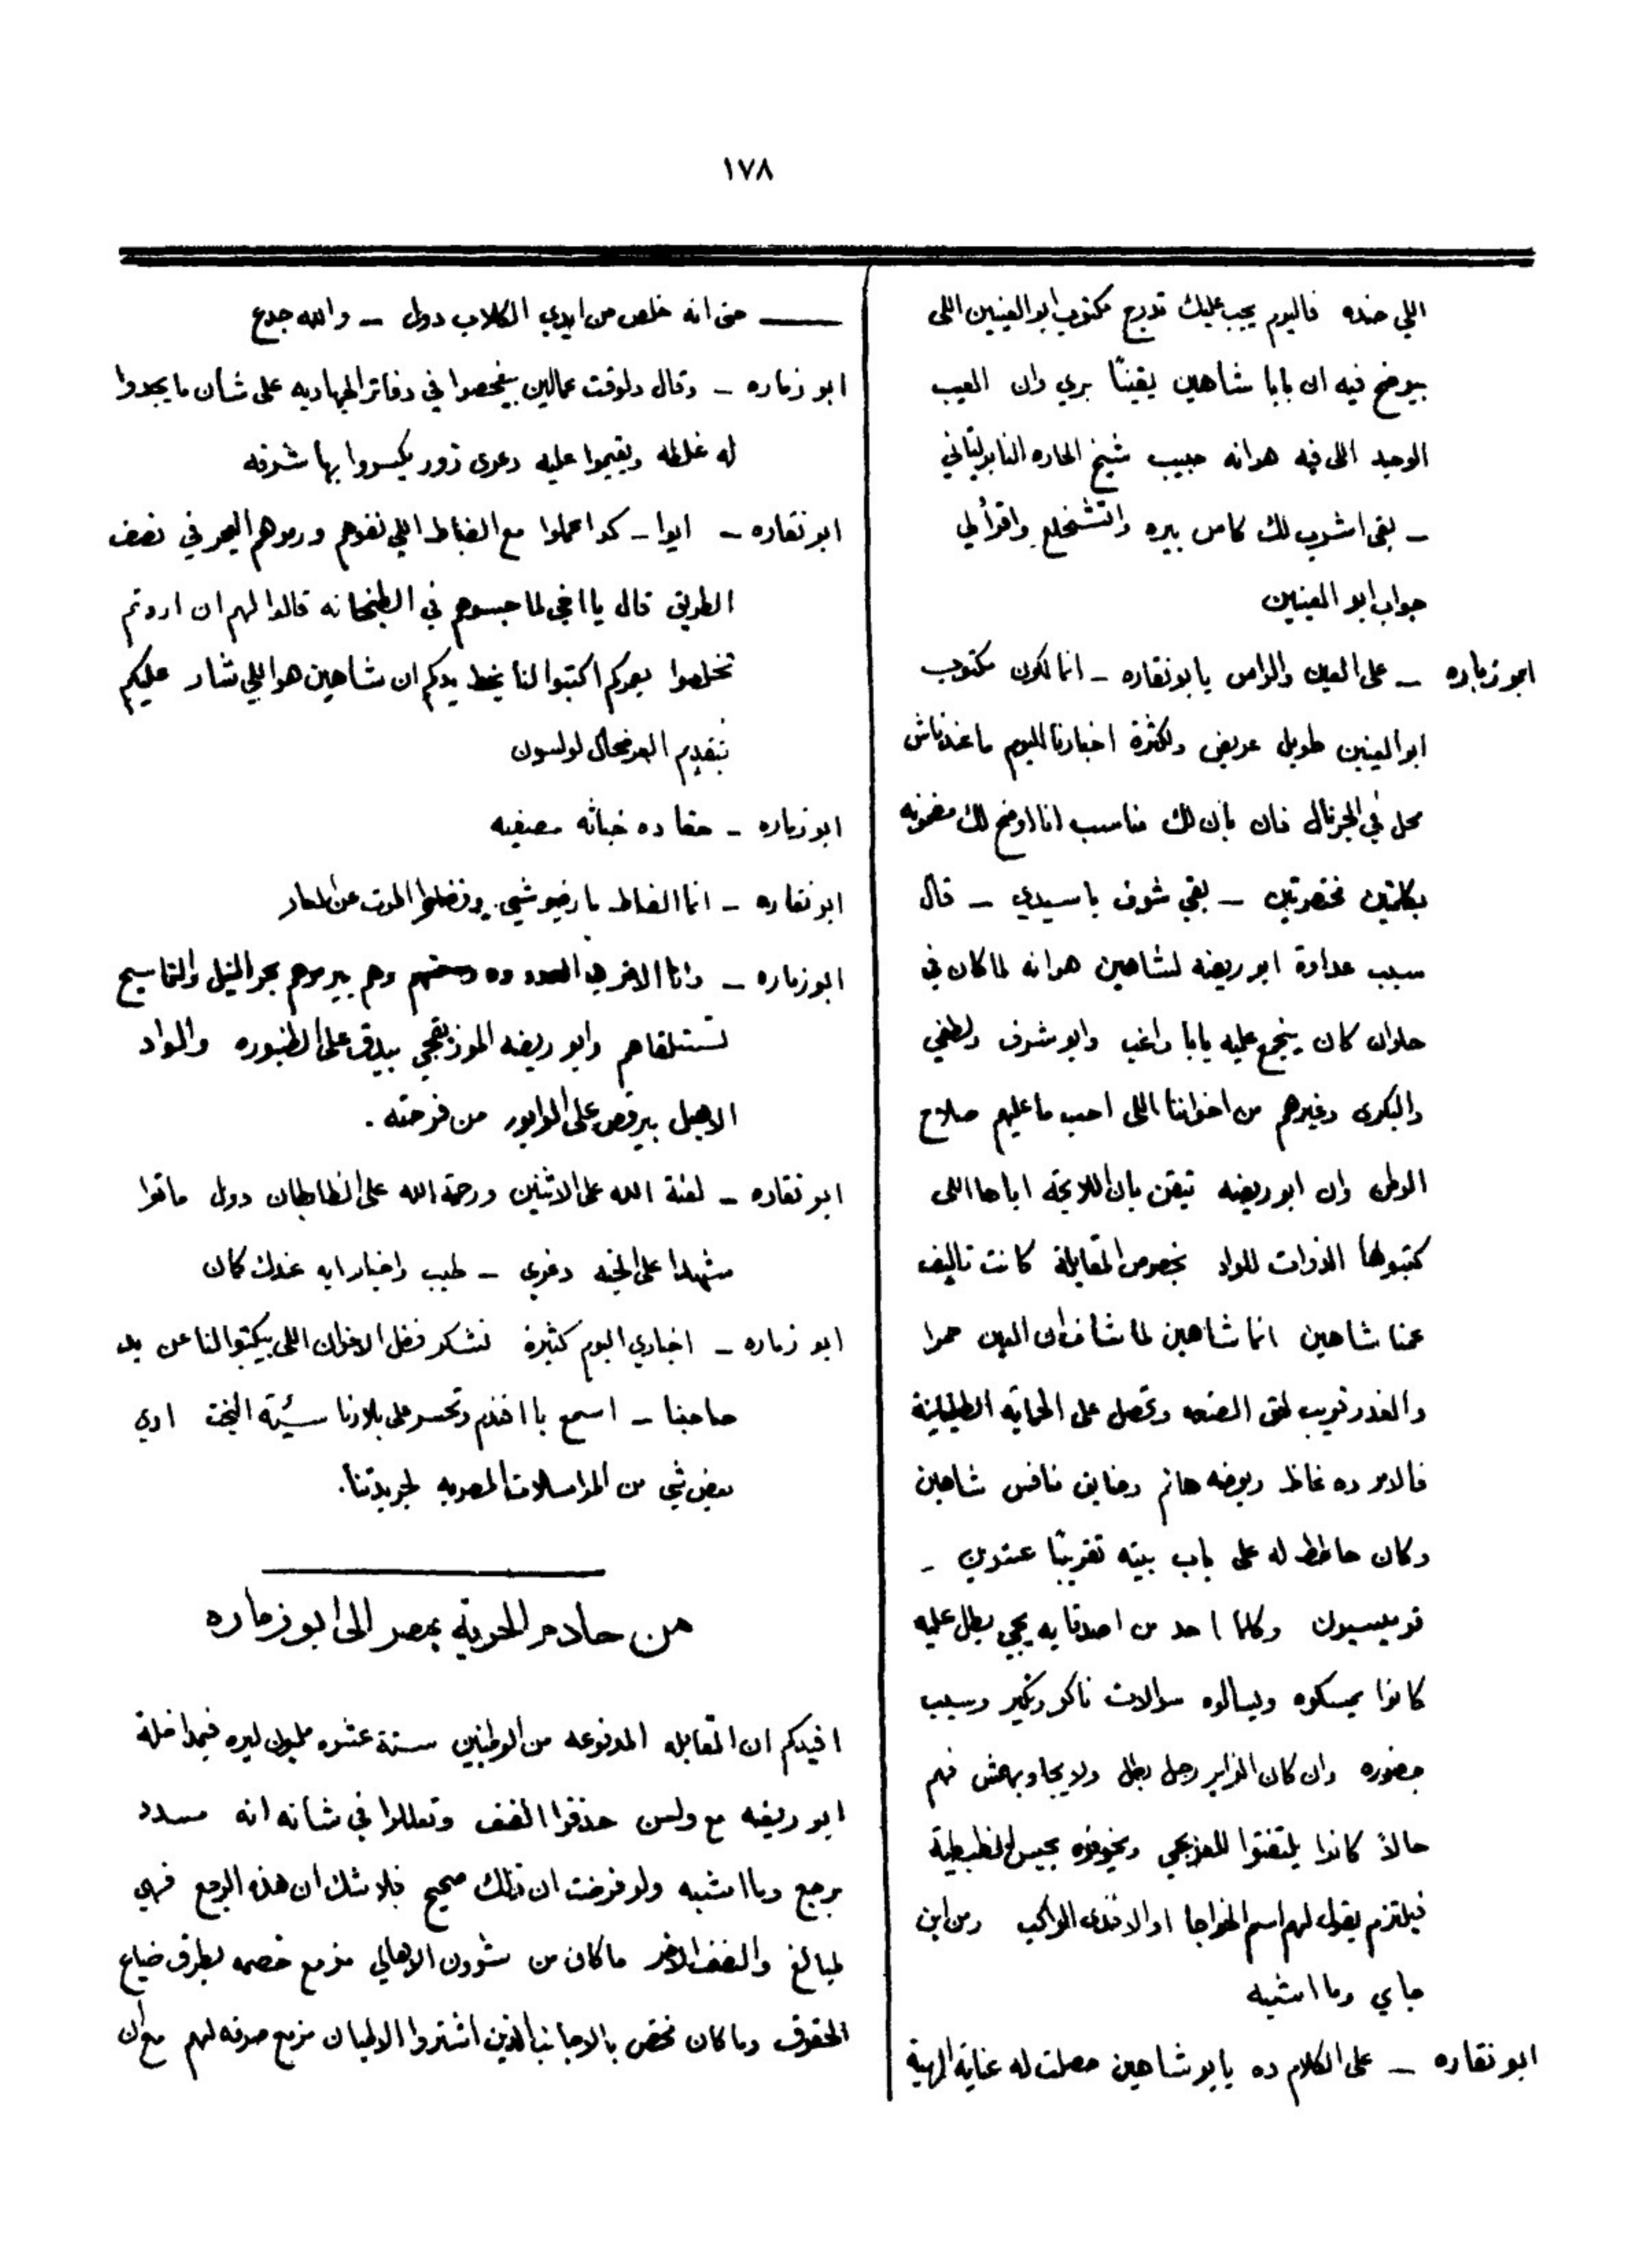 ١٧٨
اللي ضده فاليوم يجب عليك تدرج مكتوب ابو العينين اللى
بيوضح فيه ان بابا شاهين يقينًا بري وان العيب
الوحيد اللى فيه هو انه حبيب شيخ الحاره النابوليتاني
ـ بقى اشرب لك كاس بيره واتشخلع واقرأ لي
جواب ابو العينين
ابو زماره ـ على العين والراس يا بو نقاره ـ انما لكون مكتوب
ابو العينين طويل عريض ولكثرة اخبارنا اليوم ما عندناش
محل في الجرنال فان بان لك مناسب انا اوضح لك مضمونه
بكلمتين مختصرتين ـ بقي شوف يا سيدي ـ قال
سبب عداوة ابو ريضه لشاهين هو انه لما كان في
حلوان كان يتجمع عليه بابا راغب وابو شرف ولطفي
والبكرى وغيرهم من اخواننا اللى احب ما عليهم صلاح
الوطن وان ابو ريضه تيقن بان اللايحة اياها اللى
كتبوها الذوات للواد بخصوص المقابلة كانت تاليف
عمنا شاهين انما شاهين لما شاف ان العين حمرا
والغدر قريب لقى الصنعه وتحصل على الحماية الطليانية
فالامر ده غاظ ريوضه هانم وضايق نافس شاهين
وكان حاطط له على باب بيته تقريبًا عشرين ـ
قومبسيون وكلما احد من اصدقايه يجي يطل عليه
كانوا يمسكوه ويسالوه سوالات ناكر ونكير وسبب
حضوره وان كان الزاير رجل بطل ولا يجاوبهمش فهم
حالاً كانوا يلتفتوا للعربجي ويخوفوه بحبس الضبطية
فيلتزم يقول لهم اسم الخواجا او الافندى الراكب ومن اين
جاي وما اشبه
ابو نقاره ـ على الكلام ده يا بو شاهين حصلت له عناية الهية
ـــ حتى انه خلص من ايدي الكلاب دول ـ والله جدع
ابو زماره ـ وقال دلوقت عمالين بيفحصوا في دفاتر الجهاديه على شأن ما يجدوا
له غلطه ويقيموا عليه دعوى زور يكسروا بها شرفه
ابو نقاره ـ ايوا ـ كدا عملوا مع الضباط اللي نفوهم ورموهم البحر في نصف
الطريق قال يا اخي لما حبسوهم في الطبخانه قالوا لهم ان اردتم
تخلصوا بعمركم اكتبوا لنا بخط يدكم ان شاهين هو اللي شار عليكم
بتقديم العرضحال لولسون
ابو زماره ـ حقا ده خباثه مصنفيه
ابو نقاره ـ انما الضباط ما رضيوشي وفضلوا الموت عن العار
ابو زماره ـ وانا الاخر وهم بيرموهم بحر النيل والتماسيح
تستلقاهم وابو ريضه الموزيقجي بيدق على الطنبوره والواد
الاهبل بيرقص على الوابور من فرحته .
ابو نقاره ـ لعنة الله على الاثنين ورحمة الله على الظابطان دول ماتوا
شهدا على الجنه دغري ـ طيب واخبار ايه عندك كمان
ابو زماره ـ اخباري اليوم كثيرة نشكر فضل الاخوان اللى بيكتبوا لنا عن يد
صاحبنا ـ اسمع يا افندم وتحسر على بلادنا سيئة البخت ادي
بعض شي من المراسلات المصريه لجريدتنا.
من خادم الحرية بمصر الى ابو زماره
افيدكم ان المقابله المدفوعه من الوطنيين ستة عشره مليون ليره فبمداخلة
ابو ريضه مع ولسن حذفوا النصف وتعللوا في شانه انه مسدد
برجع وما اشبه ولو فرضت ان ذلك صحيح فلا شك ان هذه الرجع فهي
لمبالغ والنصف الاخر ما كان من شوون الاهالي مزمع خصمه بطرف ضياع
الحقوق وما كان مختص بالاجانب الذين اشتروا الاطيان مزمع صرفه لهم مع ان